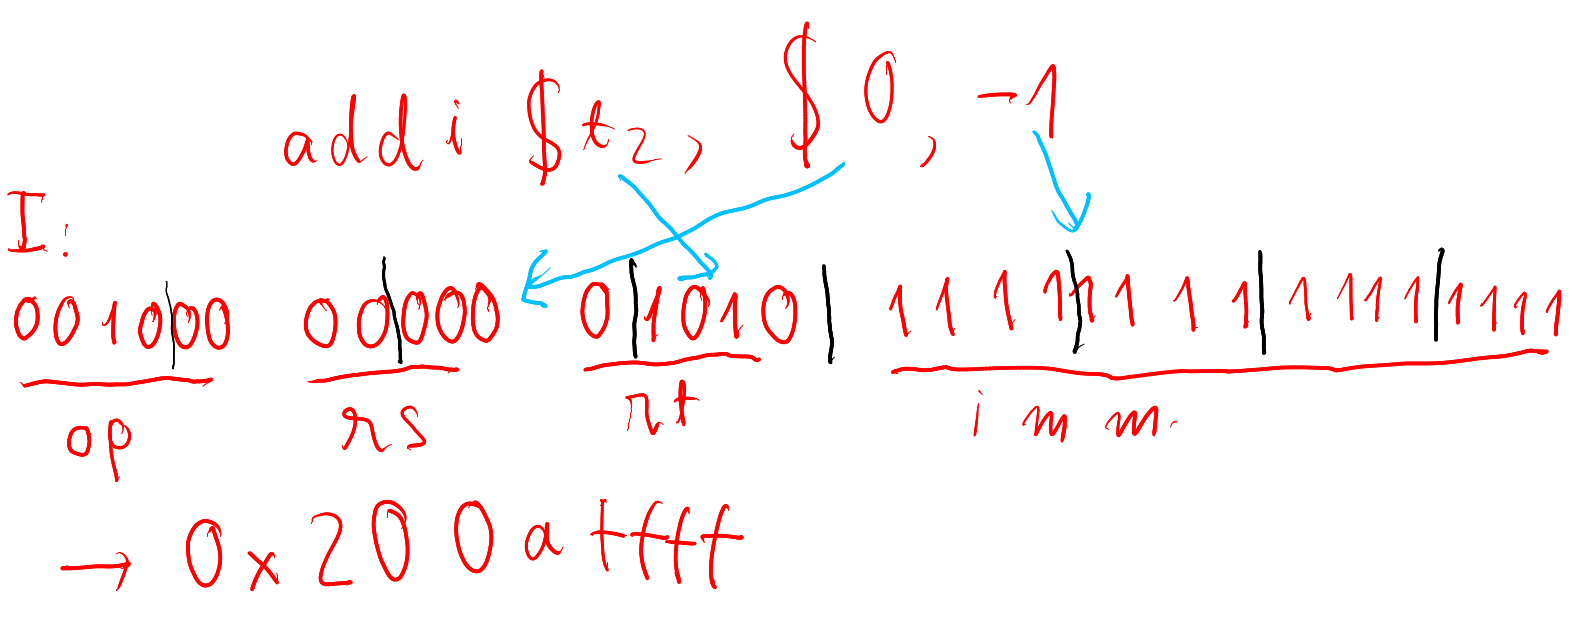 addi $t2, $0, -1
I:
001000 00000 01010 1111111111111111
op rs rt imm.
→ 0x200affff